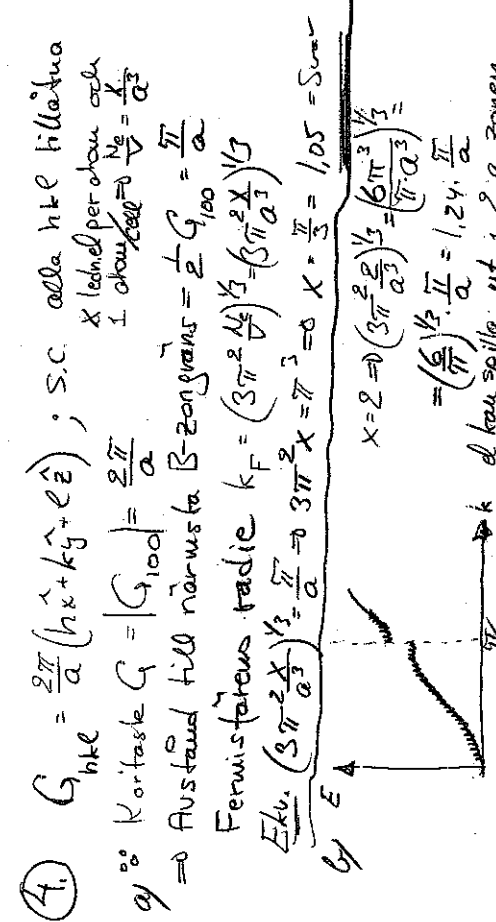 4. G_hkl = 2π/a (hx̂ + kŷ + lẑ) ; S.C. alla hkl tillåtna
x ledn.el per atom och
1 atom/cell ⇒ Ne/V = x/a³
a) ∴ Kortaste G = |G₁₀₀| = 2π/a
⇒ Avstånd till närmsta B-zongräns = 1/2 G₁₀₀ = π/a
Fermisfärens radie k_F = (3π² Ne/V)^1/3 = (3π² x/a³)^1/3
Ekv. (3π² x/a³)^1/3 = π/a ⇒ 3π² x = π³ ⇒ x = π/3 = 1,05 = Svar
b) E
x=2 ⇒ (3π² 2/a³)^1/3 = (6π³/(π·a³))^1/3 =
= (6/π)^1/3 · π/a = 1,24 · π/a
k el kan spilla ut i 2:a zonen